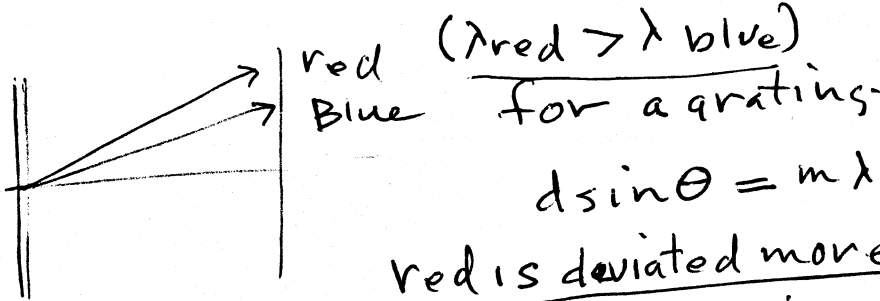 red (λred > λ blue)
Blue for a grating
d sin θ = m λ
red is deviated more